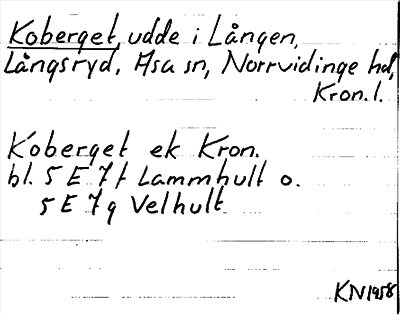 Koberget, udde i Lången,
Långsryd, Asa sn, Norrvidinge hd,
Kron. l.
Koberget ek Kron.
bl. 5 E 7 f Lammhult o.
5 E 7 g Velhult
KN 1958